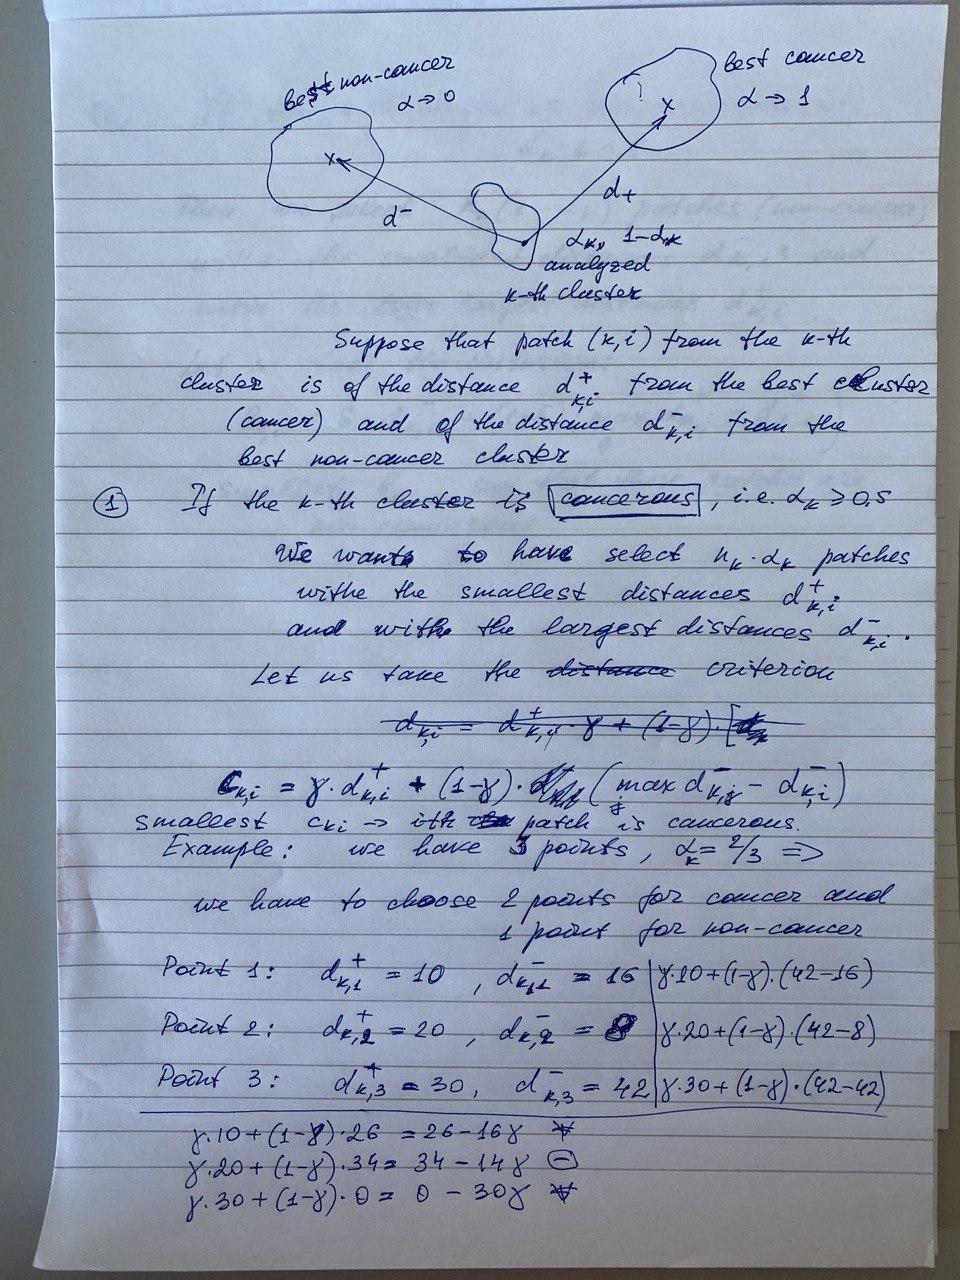 best non-cancer
α → 0
best cancer
α → 1
d⁻
d₊
α_k, 1-α_k
analyzed
k-th cluster
Suppose that patch (k,i) from the k-th
cluster is of the distance d⁺_{k,i} from the best cluster
(cancer) and of the distance d⁻_{k,i} from the
best non-cancer cluster
① If the k-th cluster is cancerous, i.e. α_k ⩾ 0.5
We want to have select n_k · α_k patches
withe the smallest distances d⁺_{k,i}
and with the largest distances d⁻_{k,i}.
Let us take the distance criterion
d_{k,i} = d⁺_{k,i} · γ + (1-γ) · [d
c_{k,i} = γ · d⁺_{k,i} + (1-γ) · (max_j d⁻_{k,j} - d⁻_{k,i})
smallest c_{ki} → ith patch is cancerous.
Example: we have 3 points, α_k = 2/3 ⇒
we have to choose 2 points for cancer and
1 point for non-cancer
Point 1: d⁺_{k,1} = 10, d⁻_{k,1} = 16 | γ·10+(1-γ)·(42-16)
Point 2: d⁺_{k,2} = 20, d⁻_{k,2} = 8 | γ·20+(1-γ)·(42-8)
Point 3: d⁺_{k,3} = 30, d⁻_{k,3} = 42 | γ·30+(1-γ)·(42-42)
γ·10+(1-γ)·26 = 26-16γ
γ·20+(1-γ)·34 = 34-14γ ⊖
γ·30+(1-γ)·0 = 0-30γ